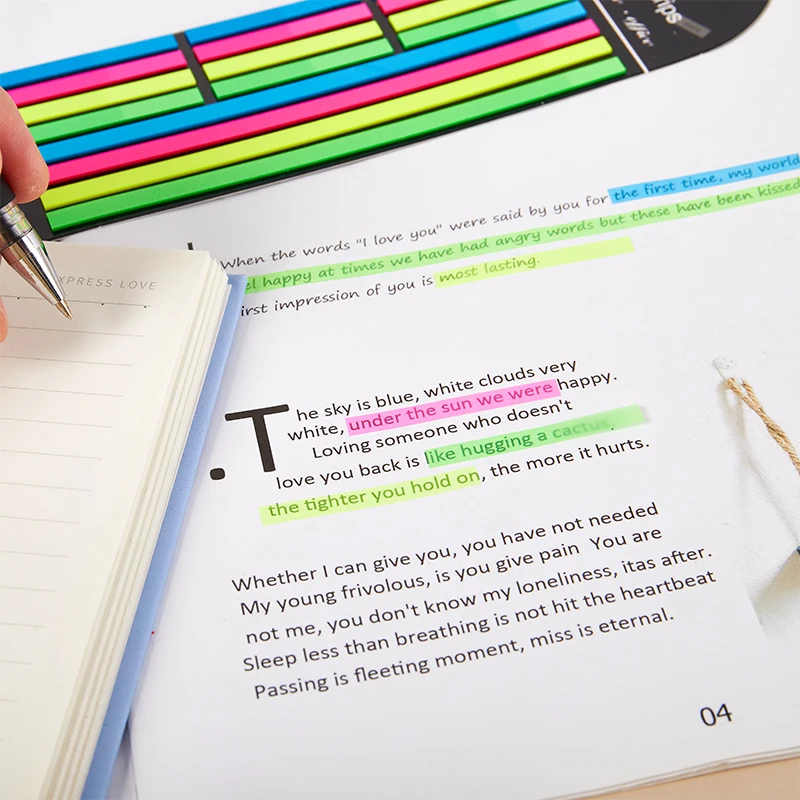 When the words "I love you" were said by you for the first time, my world
happy at times we have had angry words but these have been kissed
impression of you is most lasting.
XPRESS LOVE
.The sky is blue, white clouds very
white, under the sun we were happy.
Loving someone who doesn't
love you back is like hugging a cactus.
the tighter you hold on, the more it hurts.
Whether I can give you, you have not needed
My young frivolous, is you give pain You are
not me, you don't know my loneliness, itas after.
Sleep less than breathing is not hit the heartbeat
Passing is fleeting moment, miss is eternal.
04